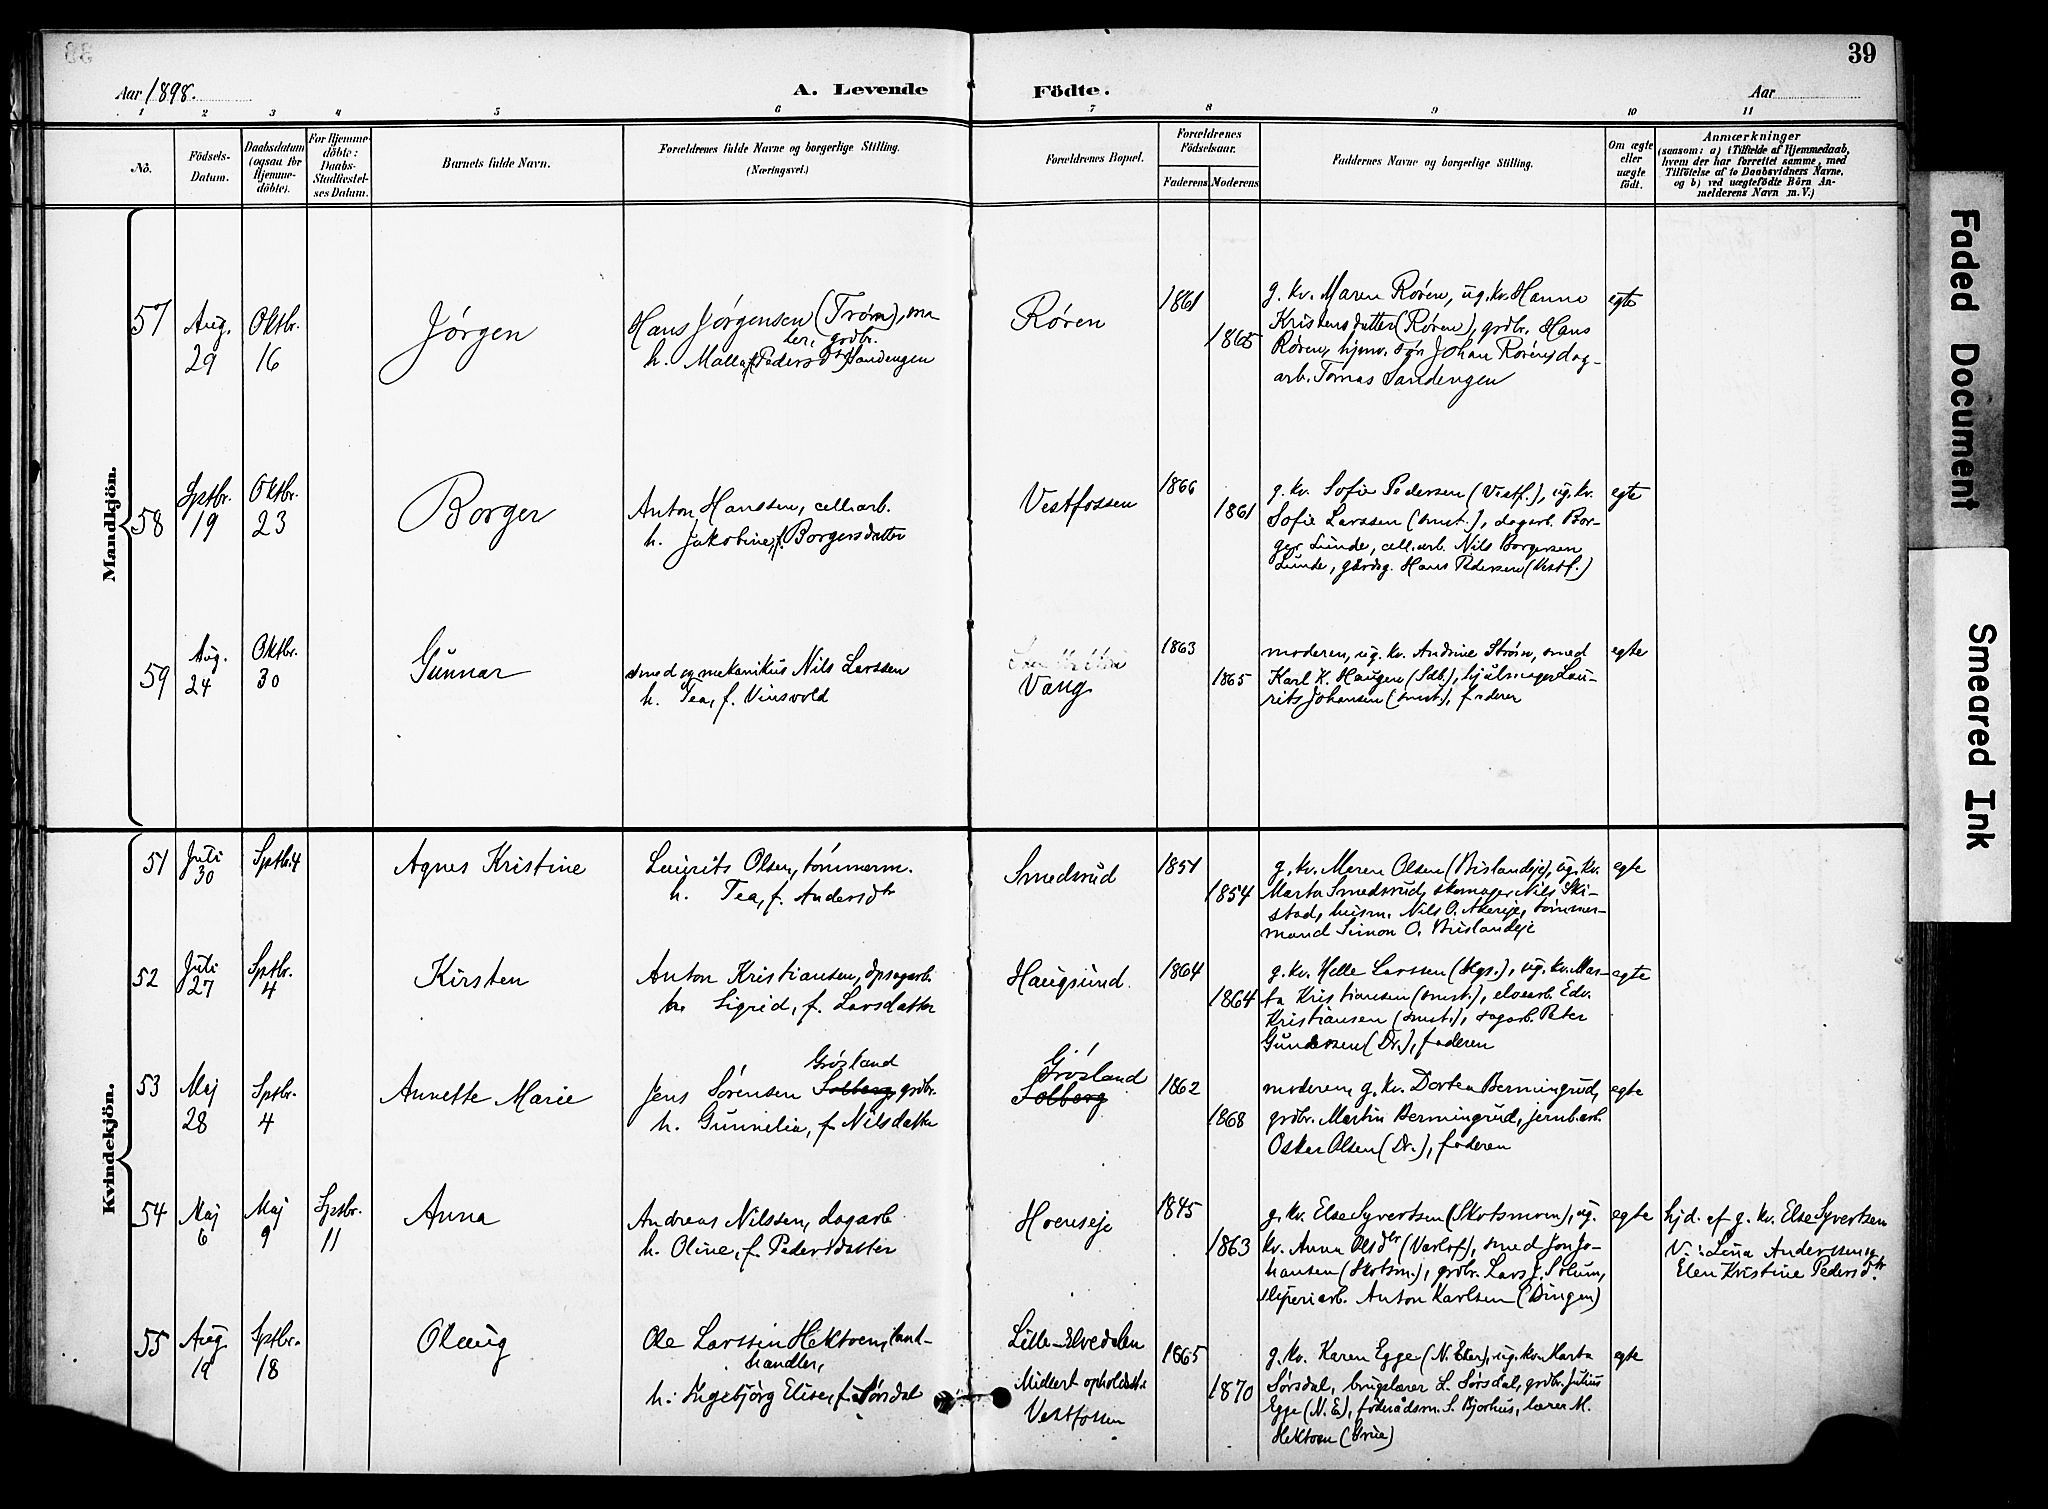 39
Aar 1898.
A. Levende Födte.
Aar
1 2 3 4 5 6 7 8 9 10 11
No.
Födsels-Datum.
Daabsdatum (ogsaa for Hjemme-döbte).
For Hjemme-döbte: Daabs-Stadfæstel-ses Datum.
Barnets fulde Navn.
Forældrenes fulde Navne og borgerlige Stilling.
(Næringsvei.)
Forældrenes Bopæl.
Forældrenes Födselsaar.
Faderens Moderens
Faddernes Navne og borgerlige Stilling.
Om ægte eller uægte födt.
Anmærkninger
(saasom: a) i Tilfælde af Hjemmedaab,
hvem der har forrettet samme, med
Tilföielse af to Daabsvidners Navne,
og b) ved uægtefödte Börn An-
melderens Navn m. V.)
Mandkjön.
57
Aug. 29
Oktbr. 16
Jørgen
Hans Jørgensen (Trøm), ma
ler, grdbr.
h. Malla, f. Pedersdtr Sandengen
Røren
1861
1865
g. kv. Maren Røren, ug. kv. Hanna
Kristensdatter (Røren), grdbr. Hans
Røren, hjmv. søn Johan Røren, dag-
arb. Tomas Sandengen
egte
58
Sptbr. 19
Oktbr. 23
Borger
Anton Hanssen, cell.arb.
h. Jakobine, f. Borgersdatter
Vestfossen
1866
1861
g. kv. Sofie Pedersen (Vestf.), ug. kv.
Sofie Larssen (smst.), dagarb. Bor-
ger Lunde, cell.arb. Nils Borgersen
Lunde, gårdsg. Hans Pedersen (Vestf.)
egte
59
Aug. 24
Oktbr. 30
Gunnar
smed og mekanikus Nils Larssen
h. Tea, f. Vinsvold
Vang
1863
1865
moderen, ug. kv. Andrine Strøm, smed
Karl K. Haugen (Sdb.), hjulmager Lau-
rits Johansen (smst.), faderen
egte
Kvindekjön.
51
Juli 30
Sptbr. 4
Agnes Kristine
Laurits Olsen, tømmerm.
h. Tea, f. Andersdtr
Smedsrud
1851
1854
g. kv. Maren Olsen (Bislandeje), ug. kv.
Marta Smedsrud, skomager Nils Ski-
stad, husm. Nils O. Akereje, tømmer-
mand Simon O. Bislandeje
egte
52
Juli 27
Sptbr. 4
Kirsten
Anton Kristiansen, dpsagarb.
h. Sigrid, f. Larsdatter
Haugsund.
1864
1864
g. kv. Helle Larssen (Hgs.), ug. kv. Mar-
ta Kristiansen (smst.), elvearb. Edv.
Kristiansen (smst.), dagarb. Peter
Gundersen (Dr.), faderen
egte
53
Maj 28
Sptbr. 4
Annette Marie
Grøsland
Jens Sørensen Solberg grdbr.
h. Gunnelia, f. Nilsdatter
Grøsland
Solberg
1862
1868
moderen, g. kv. Dortea Bermingrud,
grdbr. Martin Bermingrud, jernb.arb.
Oskar Olsen (Dr.), faderen
egte
54
Maj 6
Maj 9
Sptbr. 11
Anna
Andreas Nilssen, dagarb.
h. Oline, f. Pedersdatter
Horneseje
1845
1863
g. kv. Else Syvertsen (Skotsmoen), ug.
kv. Anna Olsdtr (Varlo), smed Jon Jo-
hansen (Skotsm.), grdbr. Lars J. Solum,
sliperiarb. Anton Karlsen (Dingen)
egte
hjd. af g. kv. Else Syvertsen
V.: Lina Anderssen og
Elen Kristine Pedersdtr.
55
Aug. 19
Sptbr. 18
Olaug
Ole Larssen Hektoen, land-
handler,
h: Ingebjörg Elise, f. Sørsdal
Lille-Elvedalen
Midlert opholdsst:
Vestfossen
1865
1870
g. kv. Karen Egge (N. Eker), ug. kv. Marta
Sørsdal, brugslærer L. Sørsdal, grdbr. Julius
Egge (N.E.), S. Bjorhus, lærer M.
Hektoen (Grue)
egte
Faded Document
Smeared Ink